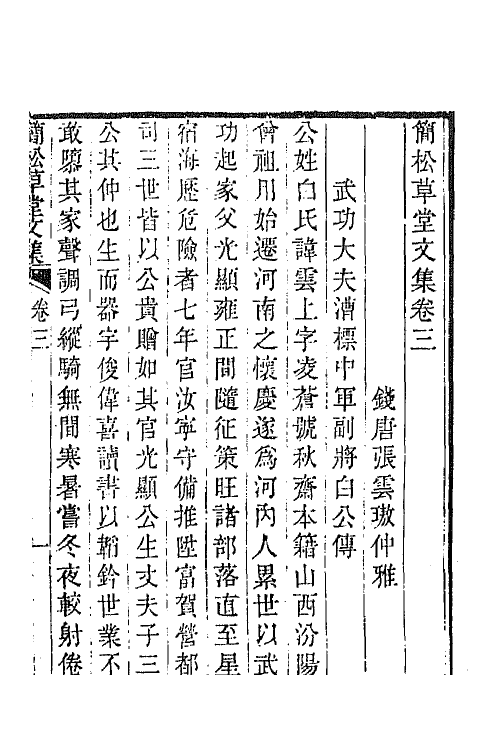 簡松草堂文集卷三
錢唐張雲璈仲雅
武功大夫漕標中軍副將白公傳
公姓白氏諱雲上字凌蒼號秋齋本籍山西汾陽
曾祖用始遷河南之懷慶遂爲河内人累世以武
功起家父光顯雍正間隨征策旺諸部落直至星
宿海歷危險者七年官汝寧守備推陞富賀營都
司三世皆以公貴贈如其官光顯公生丈夫子三
公其仲也生而器宇俊偉喜讀書以韜鈐世業不
敢隳其家聲調弓縱騎無間寒暑嘗冬夜較射倦
簡松草堂文集
卷三
一